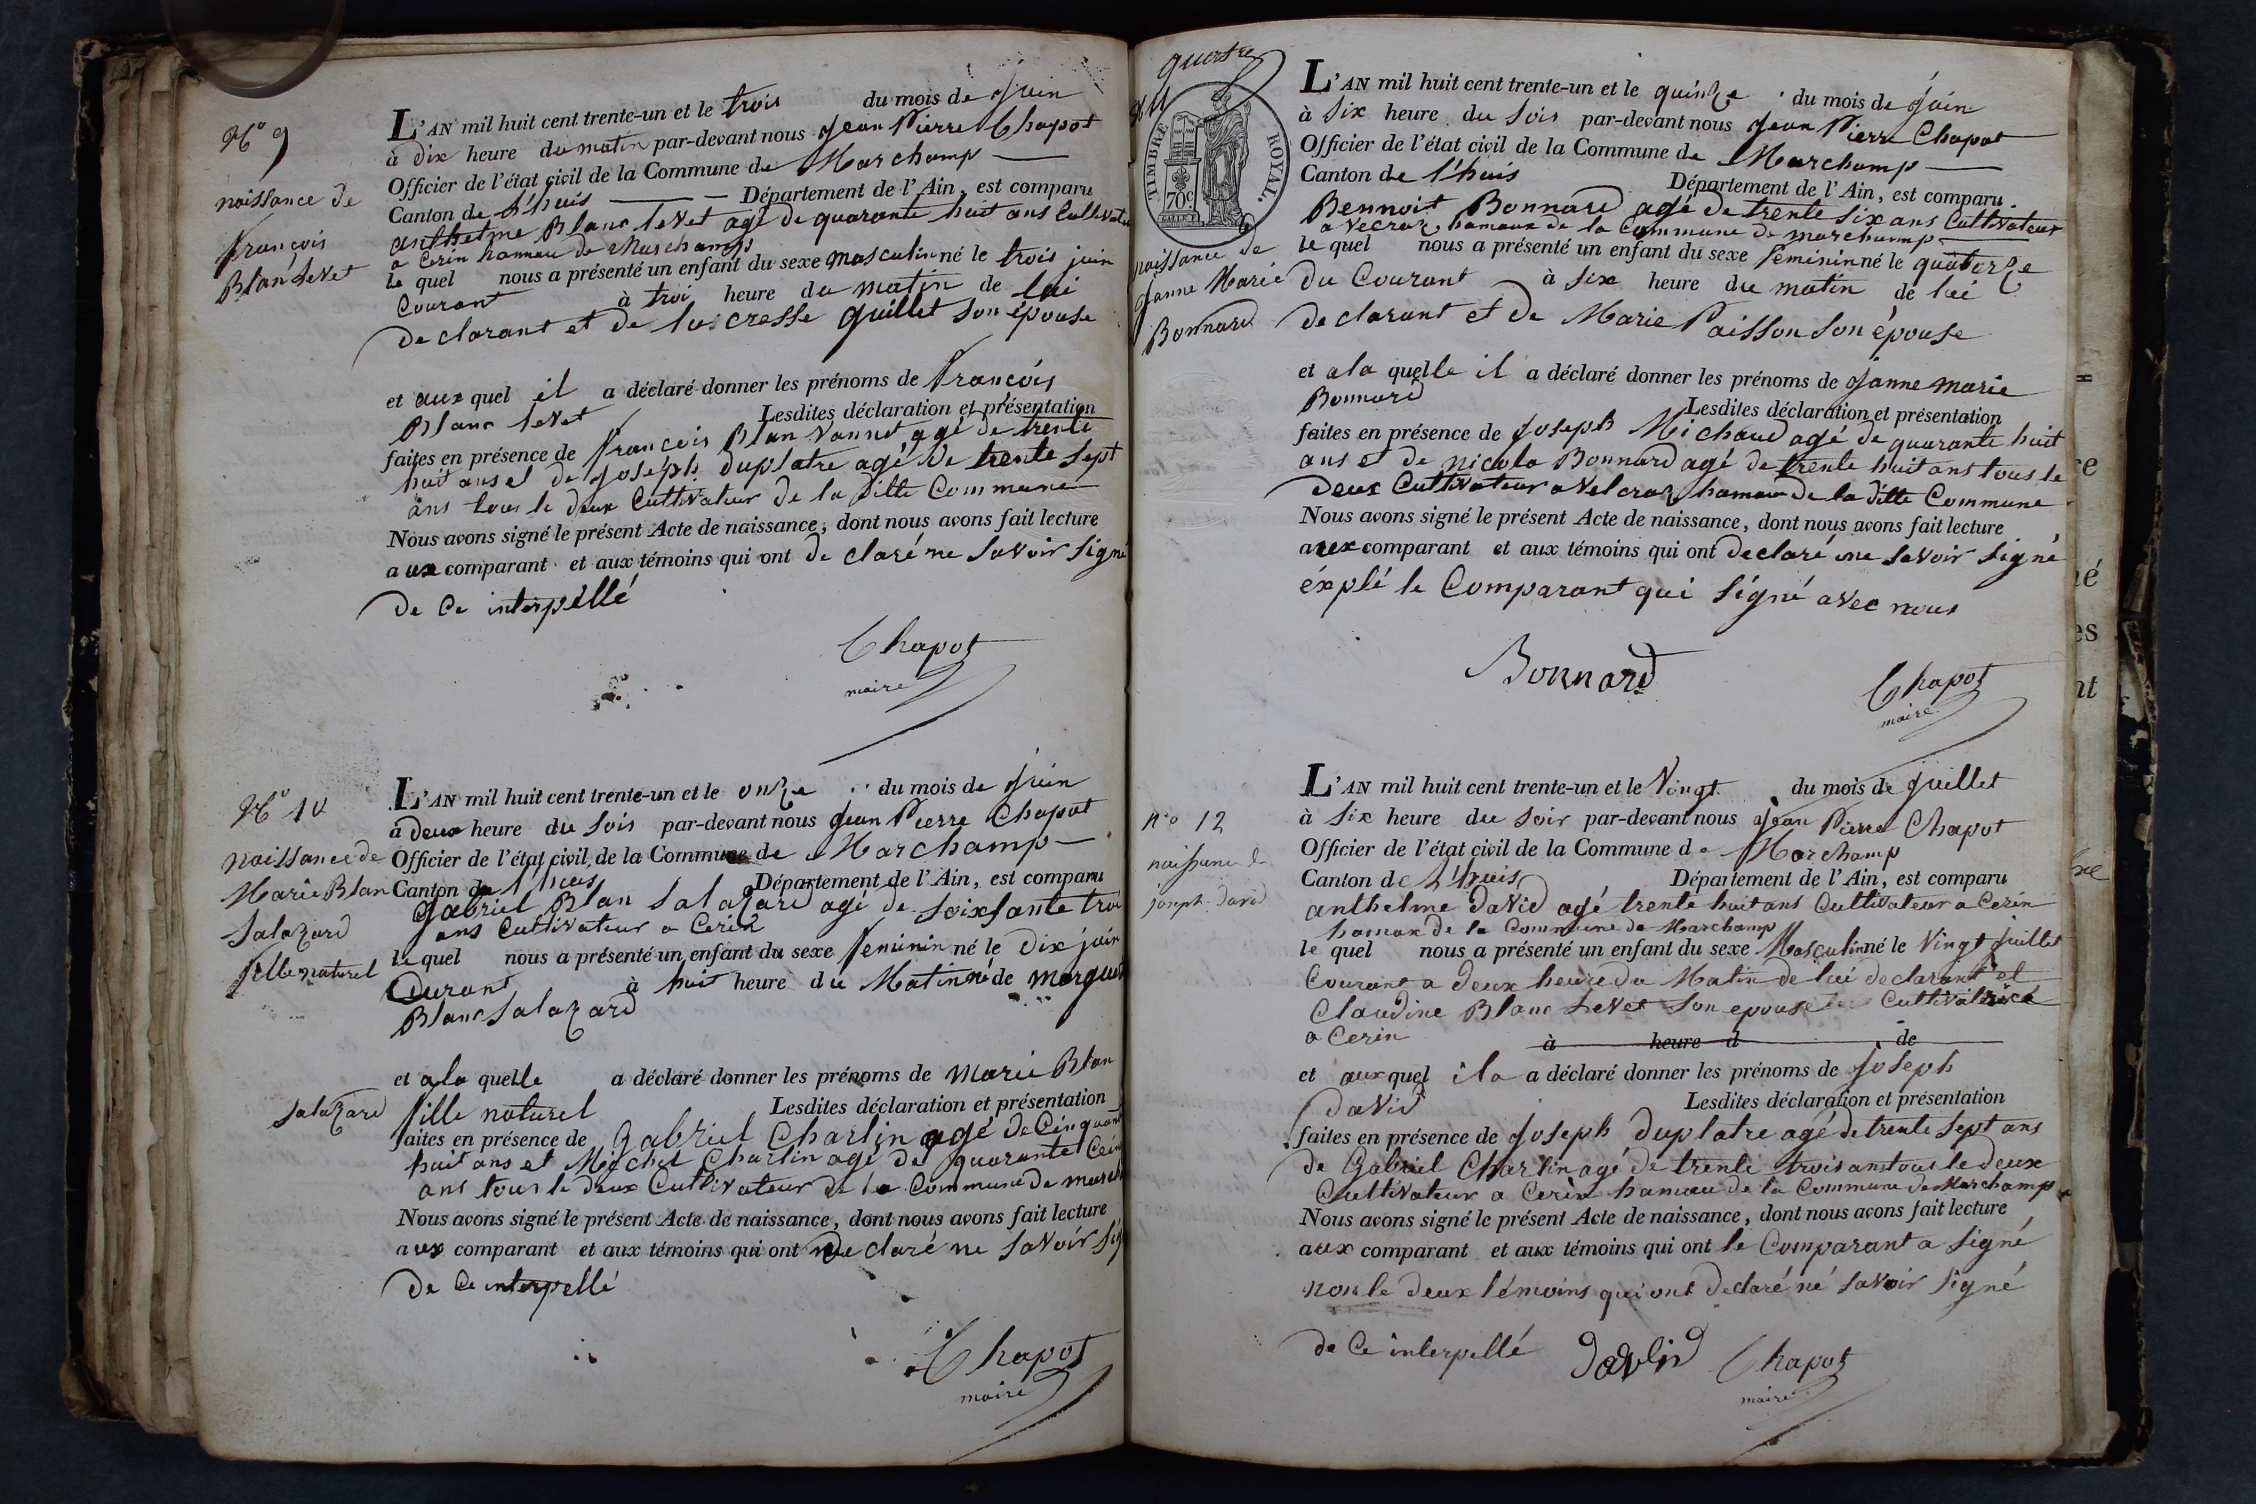 N.o 9
naissance de
françois
Blan Levet
L'AN mil huit cent trente-un et le trois du mois de Juin
à dix heure du matin par-devant nous Jean Pierre Chapot
Officier de l'état civil de la Commune de Marchamp
Canton de L'huis Département de l'Ain, est comparu
anthelme Blanc levet agé de quarante huit ans Cultivateur
a Cerin hameau de Marchamp
le quel nous a présenté un enfant du sexe masculin né le trois juin
Courant à troi heure du matin de lui
declarant et de luscresse guillet son épouse
et aux quel il a déclaré donner les prénoms de françois
Blanc levet Lesdites déclaration et présentation
faites en présence de françois Blan Vannet agé de trente
huit ans et de Joseph duplatre agé de trente sept
ans tous le deux Cultivateur de la ditte Commune
Nous avons signé le présent Acte de naissance, dont nous avons fait lecture
aux comparant et aux témoins qui ont de claré ne savoir signé
de Ce interpéllé
Chapot
maire
N.o 10
naissance de
Marie Blan
Salazard
fille naturel
L'AN mil huit cent trente-un et le onze du mois de Juin
à deux heure du soir par-devant nous Jean Pierre Chapot
Officier de l'état civil de la Commune de Marchamp
Canton de l'huis Département de l'Ain, est comparu
Gabriel Blan Salazard agé de soixsante troi
ans Cultivateur a Cerin
le quel nous a présenté un enfant du sexe feminin né le dix juin
Curant à huit heure du Matin né de marguer
Blanc Salazard
et a la quelle a déclaré donner les prénoms de Marie Blan
Salazard fille naturel Lesdites déclaration et présentation
faites en présence de Gabriel Charlin agé de Cinquant
huit ans et Michel Charlin agé de quarante Cein
ans tous le deux Cultivateur de la Commune de march
Nous avons signé le présent Acte de naissance, dont nous avons fait lecture
aux comparant et aux témoins qui ont de claré ne savoir sig
de Ce interpellé
Chapot
maire
quatre
N 11
TIMBRE ROYAL.
70c
naissance de
Janne Marie
Bonnard
L'AN mil huit cent trente-un et le quinze du mois de Juin
à six heure du soir par-devant nous Jean Pierre Chapot
Officier de l'état civil de la Commune de Marchamp
Canton de l'huis Département de l'Ain, est comparu
Bennoit Bonnard agé de trente six ans Cultivateur
a Vecraz hamaux de la Commune de marchamp
le quel nous a présenté un enfant du sexe feminin né le quatorze
du Courant à six heure du matin de lui
declarant et de Marie Paisson son épouse
et a la quelle il a déclaré donner les prénoms de Janne marie
Bonnard Lesdites déclaration et présentation
faites en présence de Joseph Michaud agé de quarante huit
ans et de nicola Bonnard agé de trente huit ans tous le
deux Cultivateur a Velcraz hamau de la ditte Commune
Nous avons signé le présent Acte de naissance, dont nous avons fait lecture
aux comparant et aux témoins qui ont declaré ne savoir signé
éxplé le Comparant qui signé avec nous
Bonnard
Chapot
maire
n.o 12
naissance de
joseph david
L'AN mil huit cent trente-un et le Vingt du mois de juillet
à six heure du soir par-devant nous Jean Pierre Chapot
Officier de l'état civil de la Commune de Marchamp
Canton de L'huis Département de l'Ain, est comparu
anthelme david agé trente huit ans Cultivateur a Cerin
hamax de la Commune de Marchamp
le quel nous a présenté un enfant du sexe Masculin né le Vingt juillet
Courant a deux heure du Matin de lui declarant et
Claudine Blanc Levet son epouse Cultivatrice
a Cerin
à heure d de
et aux quel il a a déclaré donner les prénoms de Joseph
david Lesdites déclaration et présentation
faites en présence de Joseph duplatre agé de trente sept ans
de Gabriel Charlin agé de trente trois ans tous le deux
Cultivateur a Cerin hamau de la Commune de Marchamp
Nous avons signé le présent Acte de naissance, dont nous avons fait lecture
aux comparant et aux témoins qui ont le Comparant a signé
non le deux témoins qui ont declaré né savoir signé
de Ce interpellé
david
Chapot
maire